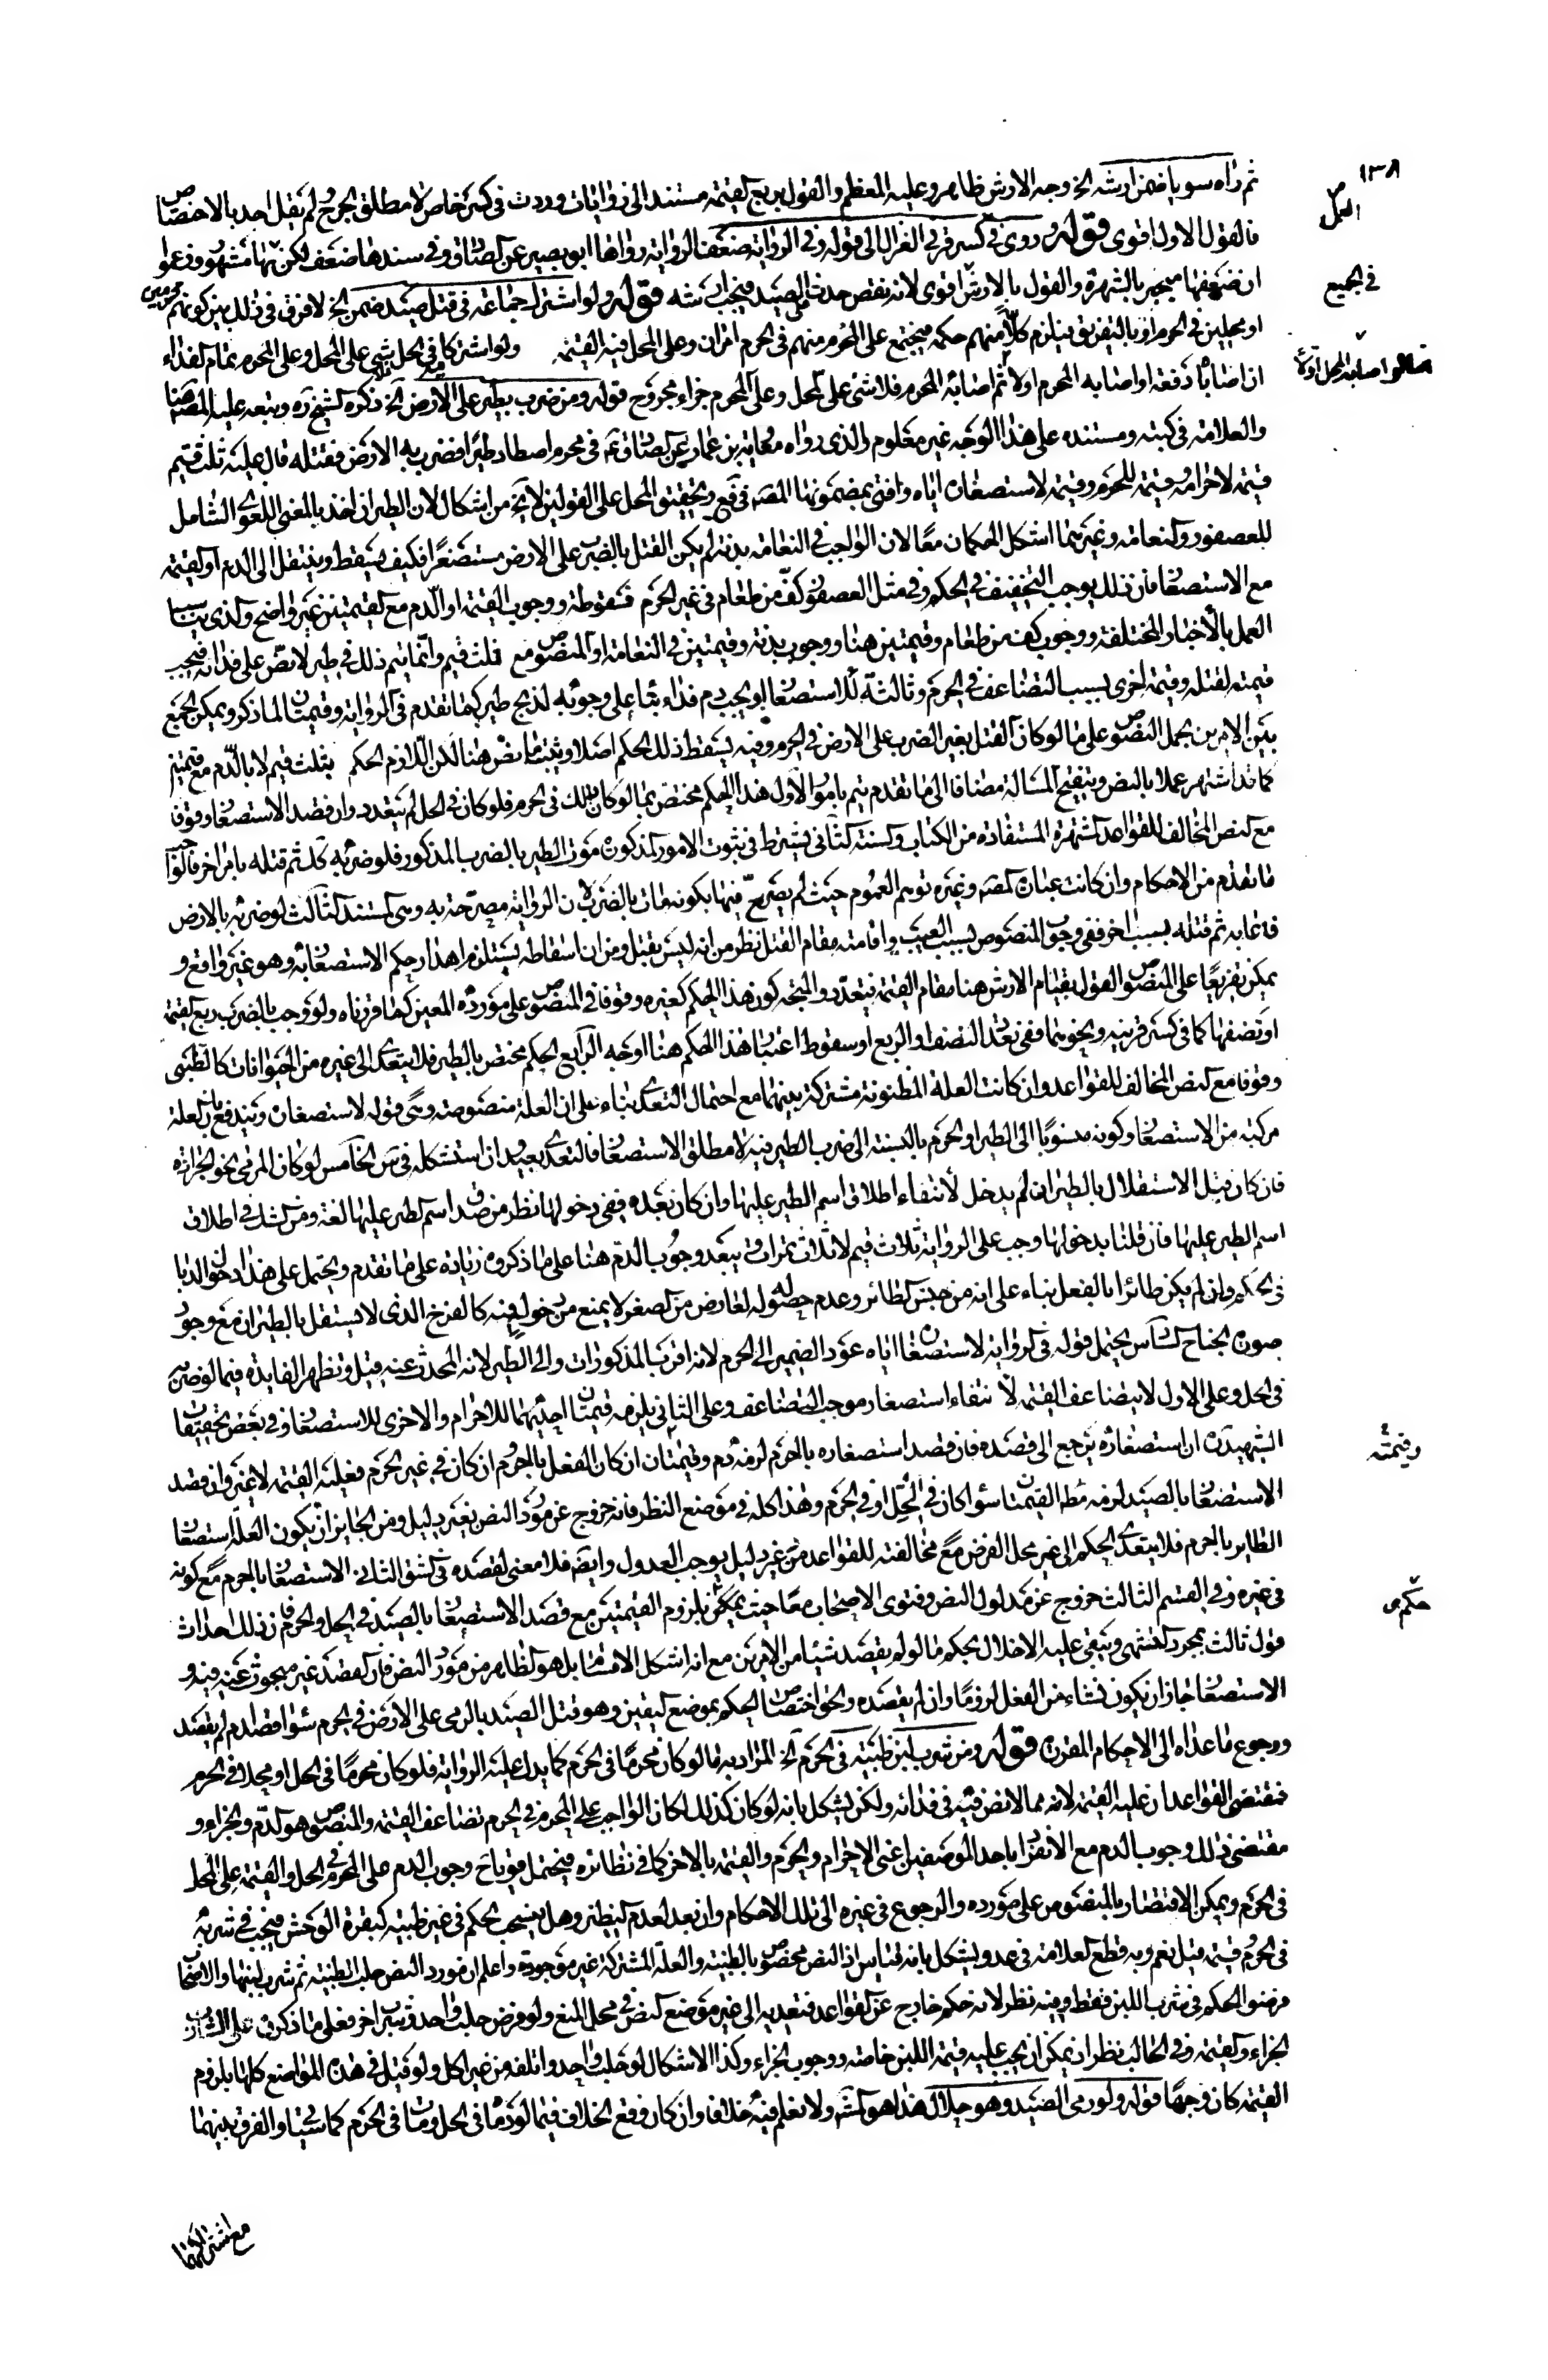 ١٣٨
ثم راه سويا ضمن ارشه الخ وجه الارش ظاهر وعليه المعظم والقول بربع القيمة مستند الى روايات وردت في كسر خاص لا مطلق الجرح ولم يقل احد بالاختصاص
فالقول الاول اقوى قوله وروى في كسر قرني الغزال الى قوله وفي الرواية ضعف الرواية رواها ابو بصير عن الصادق وفي سندها ضعف لكنها مشهورة وادعوا
العمل
ان ضعفها منجبر بالشهرة والقول بالارش اقوى لانه نقص حدث على الصيد فيجب ارشه قوله ولو اشترك جماعة في قتل صيد ضمن الخ لا فرق في ذلك بين كونهم محرمين
في الجميع
او محلين في الحرم او بالتفريق فيلزم كلا منهم حكمه فيجتمع على المحرم منهم في الحرم امران وعلى المحل فيه القيمة ولو اشتركا في الحل فلا شي على المحل وعلى المحرم تمام الفداء
ان اصاباه دفعة او اصابه المحرم اولا ثم اصابه المحرم فلا شئ على المحل وعلى المحرم جزاء مجروح قوله ومن ضرب بطير على الارض الخ ذكره الشيخ ره وتبعه عليه المصنف هنا
والعلامة في كتبه ومستنده على هذا الوجه غير معلوم والذي رواه معوية بن عمار عن الصادق ع في محرم اصطاد طيرا فضرب به الارض فقتله قال عليه ثلث قيم
قيمة لاحرامه وقيمة للحرم وقيمة لاستصغاره اياه وافتى بمضمونها المصنف في فع وتحقيق المحل على القولين لا يخ من اشكال لان الطير ان اخذ بالمعنى اللغوي الشامل
للعصفور والنعامة وغيرهما اشكل الحكمان معا لان الواجب في النعامة بدنة لو لم يكن القتل بالضرب على الارض مستصغرا فكيف يسقط وينتقل الى الدم او القيمة
مع الاستصغار فان ذلك يوجب التخفيف في الحكم وفي مثل العصفور كف من طعام في غير الحرم فسقوطه ووجوب القيمة او الدم مع القيمتين غير واضح والذي يناسب
العمل بالأخبار المختلفة ووجوب كف من طعام وقيمتين هنا ووجوب بدنة وقيمتين في النعامة او المنصوص مع قلت قيم وانما يتم ذلك في طير لا نص على فدائه فيجب
قيمة لقتله وقيمة اخرى بسبب التضاعف في الحرم وثالثة للاستصغار او يجب دم فداء بناء على وجوبه لذبح طير كما تقدم في الرواية وقيمتان لما ذكر ويمكن الجمع
بين الامرين بحمل النصوص على ما لو كان القتل بغير الضرب على الارض في الحرم وفيه يسقط ذلك الحكم اصلا ويثبت ما نص هنا لكن اللازم الحكم بثلث قيم لا بالدم مع قيمتين
كما قد اشتهر عملا بالنص وتنقيح المسالة مضافا الى ما تقدم يتم بامور الأول هذا الحكم مختص بما لو كان ذلك في الحرم فلو كان في الحل لم يتعدد وان قصد الاستصغار وقوفا
مع النص المخالف للقواعد الشهيرة المستفادة من الكتاب والسنة الثاني يشترط في ثبوت الامور المذكورة موت الطير بالضرب المذكور فلو ضربه كذلك ثم قتله بامر اخر فالواجب
ما تقدم من الاحكام وان كانت عبارة المصنف وغيره توهم العموم حيث لم يصرح فيها بكونه مات بالضرب لان الرواية مصرحة به وهى المستند الثالث لو ضربه بالارض
فاعابه ثم قتله بسبب اخر ففي وجوب المنصوص بسبب العيب واقامته مقام القتل نظر من انه ليس بقتل ومن ان اسقاطه يستلزم اهدار حكم الاستصغار به وهو غير واقع و
يمكن تفريعا على المنصوص القول بقيام الارش هنا مقام القيمة فيتعدد والمتجه كون هذا الحكم كغيره وقوفا في المنصوص على مورده المعين كما قررناه ولو وجب بالضرب ربع القيمة
او نصفها كما في كسر قرنيه ونحوهما ففي تعدد النصف او الربع او سقوط اعتبار هذا الحكم هنا اوجه الرابع الحكم مختص بالطير فلا يتعدى الى غيره من الحيوانات كالظبى
وقوفا مع النص المخالف للقواعد وان كانت العلة المظنونة مشتركة بينهما مع احتمال التعدي بناء على ان العلة منصوصة وهى قوله لاستصغاره ويندفع بان العلة
مركبة من الاستصغار وكونه منسوبا الى الطير او الحرم بالنسبة الى ضرب الطير فيه لا مطلق الاستصغار فالتعدي بعيد وان استشكله في س الخامس لو كان المرمي نحو الجرادة
فان كان قبل الاستقلال بالطيران لم يدخل لأنتفاء اطلاق اسم الطير عليها وان كان بعده ففي دخولها نظر من صدق اسم الطير عليها لغة ومن الشك في اطلاق
اسم الطير عليها فان قلنا بدخولها وجب على الرواية ثلاث قيم لا ثلاث تمرات ويبعد وجوب الدم هنا على ما ذكروه زيادة على ما تقدم ويحتمل على هذا دخول الدبا
في الحكم وان لم يكن طائرا بالفعل بناء على انه من جنس الطائر وعدم حصوله لعارض من الصغر لا يمنع من دخوله فيه كالفرخ الذي لا يستقل بالطيران مع وجود
صورة الجناح السادس يحتمل قوله في الرواية لاستصغاره اياه عود الضمير الى الحرم لانه اقرب المذكورات والى الطير لانه المحدث عنه قيل وتظهر الفايدة فيما لو ضرب
في الحل وعلى الاول لا يتضاعف القيمة لا نتفاء استصغار موجب التضاعف وعلى الثاني يلزمه قيمتان احديهما للاحرام والاخرى للاستصغار وفي بعض تحقيقات
الشهيد ره ان استصغاره يرجع الى قصده فان قصد استصغاره بالحرم لزمه دم وقيمتان ان كان الفعل بالحرم وان كان في غير الحرم فعليه القيمة لا غير وان قصد
وقيمته
الاستصغار بالصيد لزمه مط القيمتان سواء كان في الحل او في الحرم وهذا كله في موضع النظر فانه خروج عن مورد النص بغير دليل ومن الجايز ان يكون العلة استصغار
الطاير بالحرم فلا يتعدى الحكم الى غير محل الفرض مع مخالفته للقواعد من غير دليل يوجب العدول وايضا فلا معنى لقصده في الشق الثاني الاستصغار بالحرم مع كونه
في غيره وفي القسم الثالث خروج عن مدلول النص وفتوى الاصحاب معا حيث يحكم بلزوم القيمتين مع قصد الاستصغار بالصيد في الحل والحرم فان ذلك احداث
قول ثالث بمجرد التشهي ويبقى عليه الاخلال بحكم ما لو لم يقصد شيئا من الامرين مع انه اشكل الاقسام بل هو الظاهر من مورد النص فان القصد غير مبحوث عنه فيه و
الاستصغار جاز ان يكون نشاء من الفعل لزوما وان لم يقصده والحق اختصاص الحكم بموضع اليقين وهو قتل الصيد بالرمى على الارض في الحرم سواء قصد ام لم يقصد
ورجوع ما عداه الى الاحكام المقررة قوله ومن شرب لبن ظبية في الحرم الخ المراد به ما لو كان محرما في الحرم كما يدل عليه الرواية فلو كان محرما في الحل او محلا في الحرم
فمقتضى القواعد ان عليه القيمة لانه مما لا نص فيه في فدائه ولكن يشكل بانه لو كان كذلك لكان الواجب على المحرم في الحرم تضاعف القيمة والمنصوص هو الدم والجزاء و
مقتضى ذلك وجوب الدم مع الانفراد باحد الوصفين اعنى الاحرام والحرم والقيمة بالاخر كما في نظائره فيحتمل قويا ح وجوب الدم على المحرم في الحل والقيمة على المحل
في الحرم ويمكن الاقتصار بالمنصوص على مورده والرجوع في غيره الى تلك الاحكام وان بعد لعدم النظير وهل ينسحب الحكم في غير ظبية كبقرة الوحش فيجب في شربه
في الحرم قيمة قيل نعم وبه قطع العلامة في عد ويشكل بانه قياس اذ النص مخصوص بالظبية والعلة المشتركة غير موجودة واعلم ان مورد النص حلب الظبية ثم شرب لبنها والاصحاب
فرضوا الحكم في شرب اللبن فقط وفيه نظر لانه حكم خارج عن القواعد فتعديه الى غير موضع النص في محل المنع ولو فرض حلب واحد وشرب اخر فعلى ما ذكروه على الشارب
الجزاء والقيمة وفي الحالب نظر اذ يمكن ان يجب عليه قيمة اللبن خاصة ووجوب الجزاء وكذا الاشكال لو حلب واحد واتلفه من غير اكل ولو قيل في هذه المواضع كلها بلزوم
القيمة كان وجها قوله ولو رمى الصيد وهو حلال هذا هو المشهور ولا نعلم فيه خلافا وان كان وقع الخلاف فيما لو رما في الحل ومات في الحرم كما سيجئ والفرق بينهما